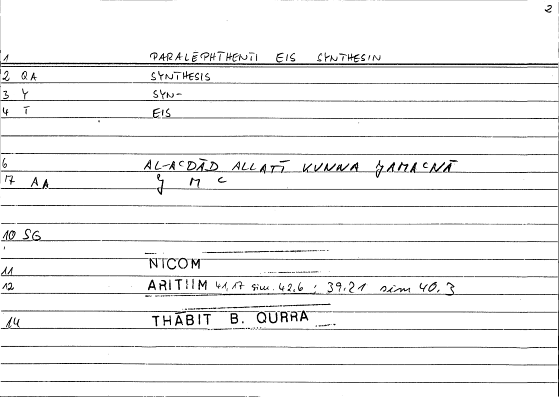 2
1 PARALĒPHTHENTI EIS SYNTHESIN
2 QA SYNTHESIS
3 Y SYN-
4 T EIS
6 AL-ACDĀD ALLATĪ KUNNA ǦAMACNĀ
17 AA Ǧ M C
10 SG
11 NICOM
12 ARITIIM 41,17 sim. 42,6 ; 39.21 sim 40.3
14 THĀBIT B. QURRA